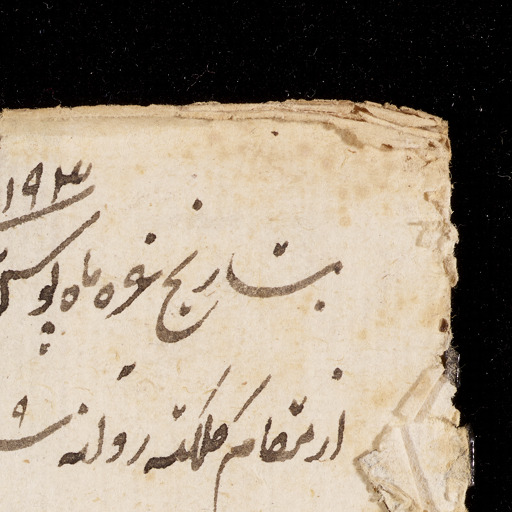 ۱۹۳
بتاریخ غره ماه پوس
از مقام کلکته روانه